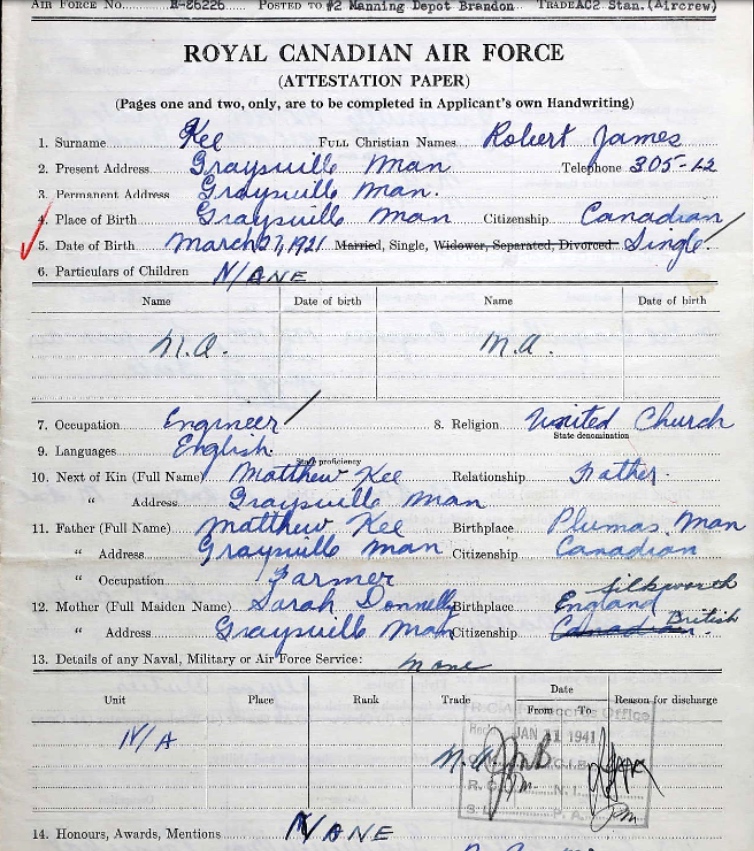 AIR FORCE No. R-86226 POSTED TO #2 Manning Depot Brandon TRADE AC2 Stan.(Aircrew)
ROYAL CANADIAN AIR FORCE
(ATTESTATION PAPER)
(Pages one and two, only, are to be completed in Applicant's own Handwriting)
1. Surname Kee FULL Christian Names Robert James
2. Present Address Graysville Man Telephone 305-12
3. Permanent Address Graysville Man.
4. Place of Birth Graysville Man Citizenship Canadian
5. Date of Birth March 27, 1921 Married, Single, Widower, Separated, Divorced Single
6. Particulars of Children N/ANE
Name Date of birth Name Date of birth
N.A. N.A.
7. Occupation Engineer 8. Religion United Church
State denomination
9. Languages English.
State proficiency
10. Next of Kin (Full Name) Matthew Kee Relationship Father.
" Address Graysville Man
11. Father (Full Name) Matthew Kee Birthplace Plumas, Man
" Address Graysville Man Citizenship Canadian
" Occupation Farmer
Silkworth
12. Mother (Full Maiden Name) Sarah Donnelly Birthplace England
" Address Graysville Man Citizenship Canadian. British
13. Details of any Naval, Military or Air Force Service: none
Unit Place Rank Trade Date From To Reason for discharge
N/A N.A.
JAN 11 1941
14. Honours, Awards, Mentions NANE